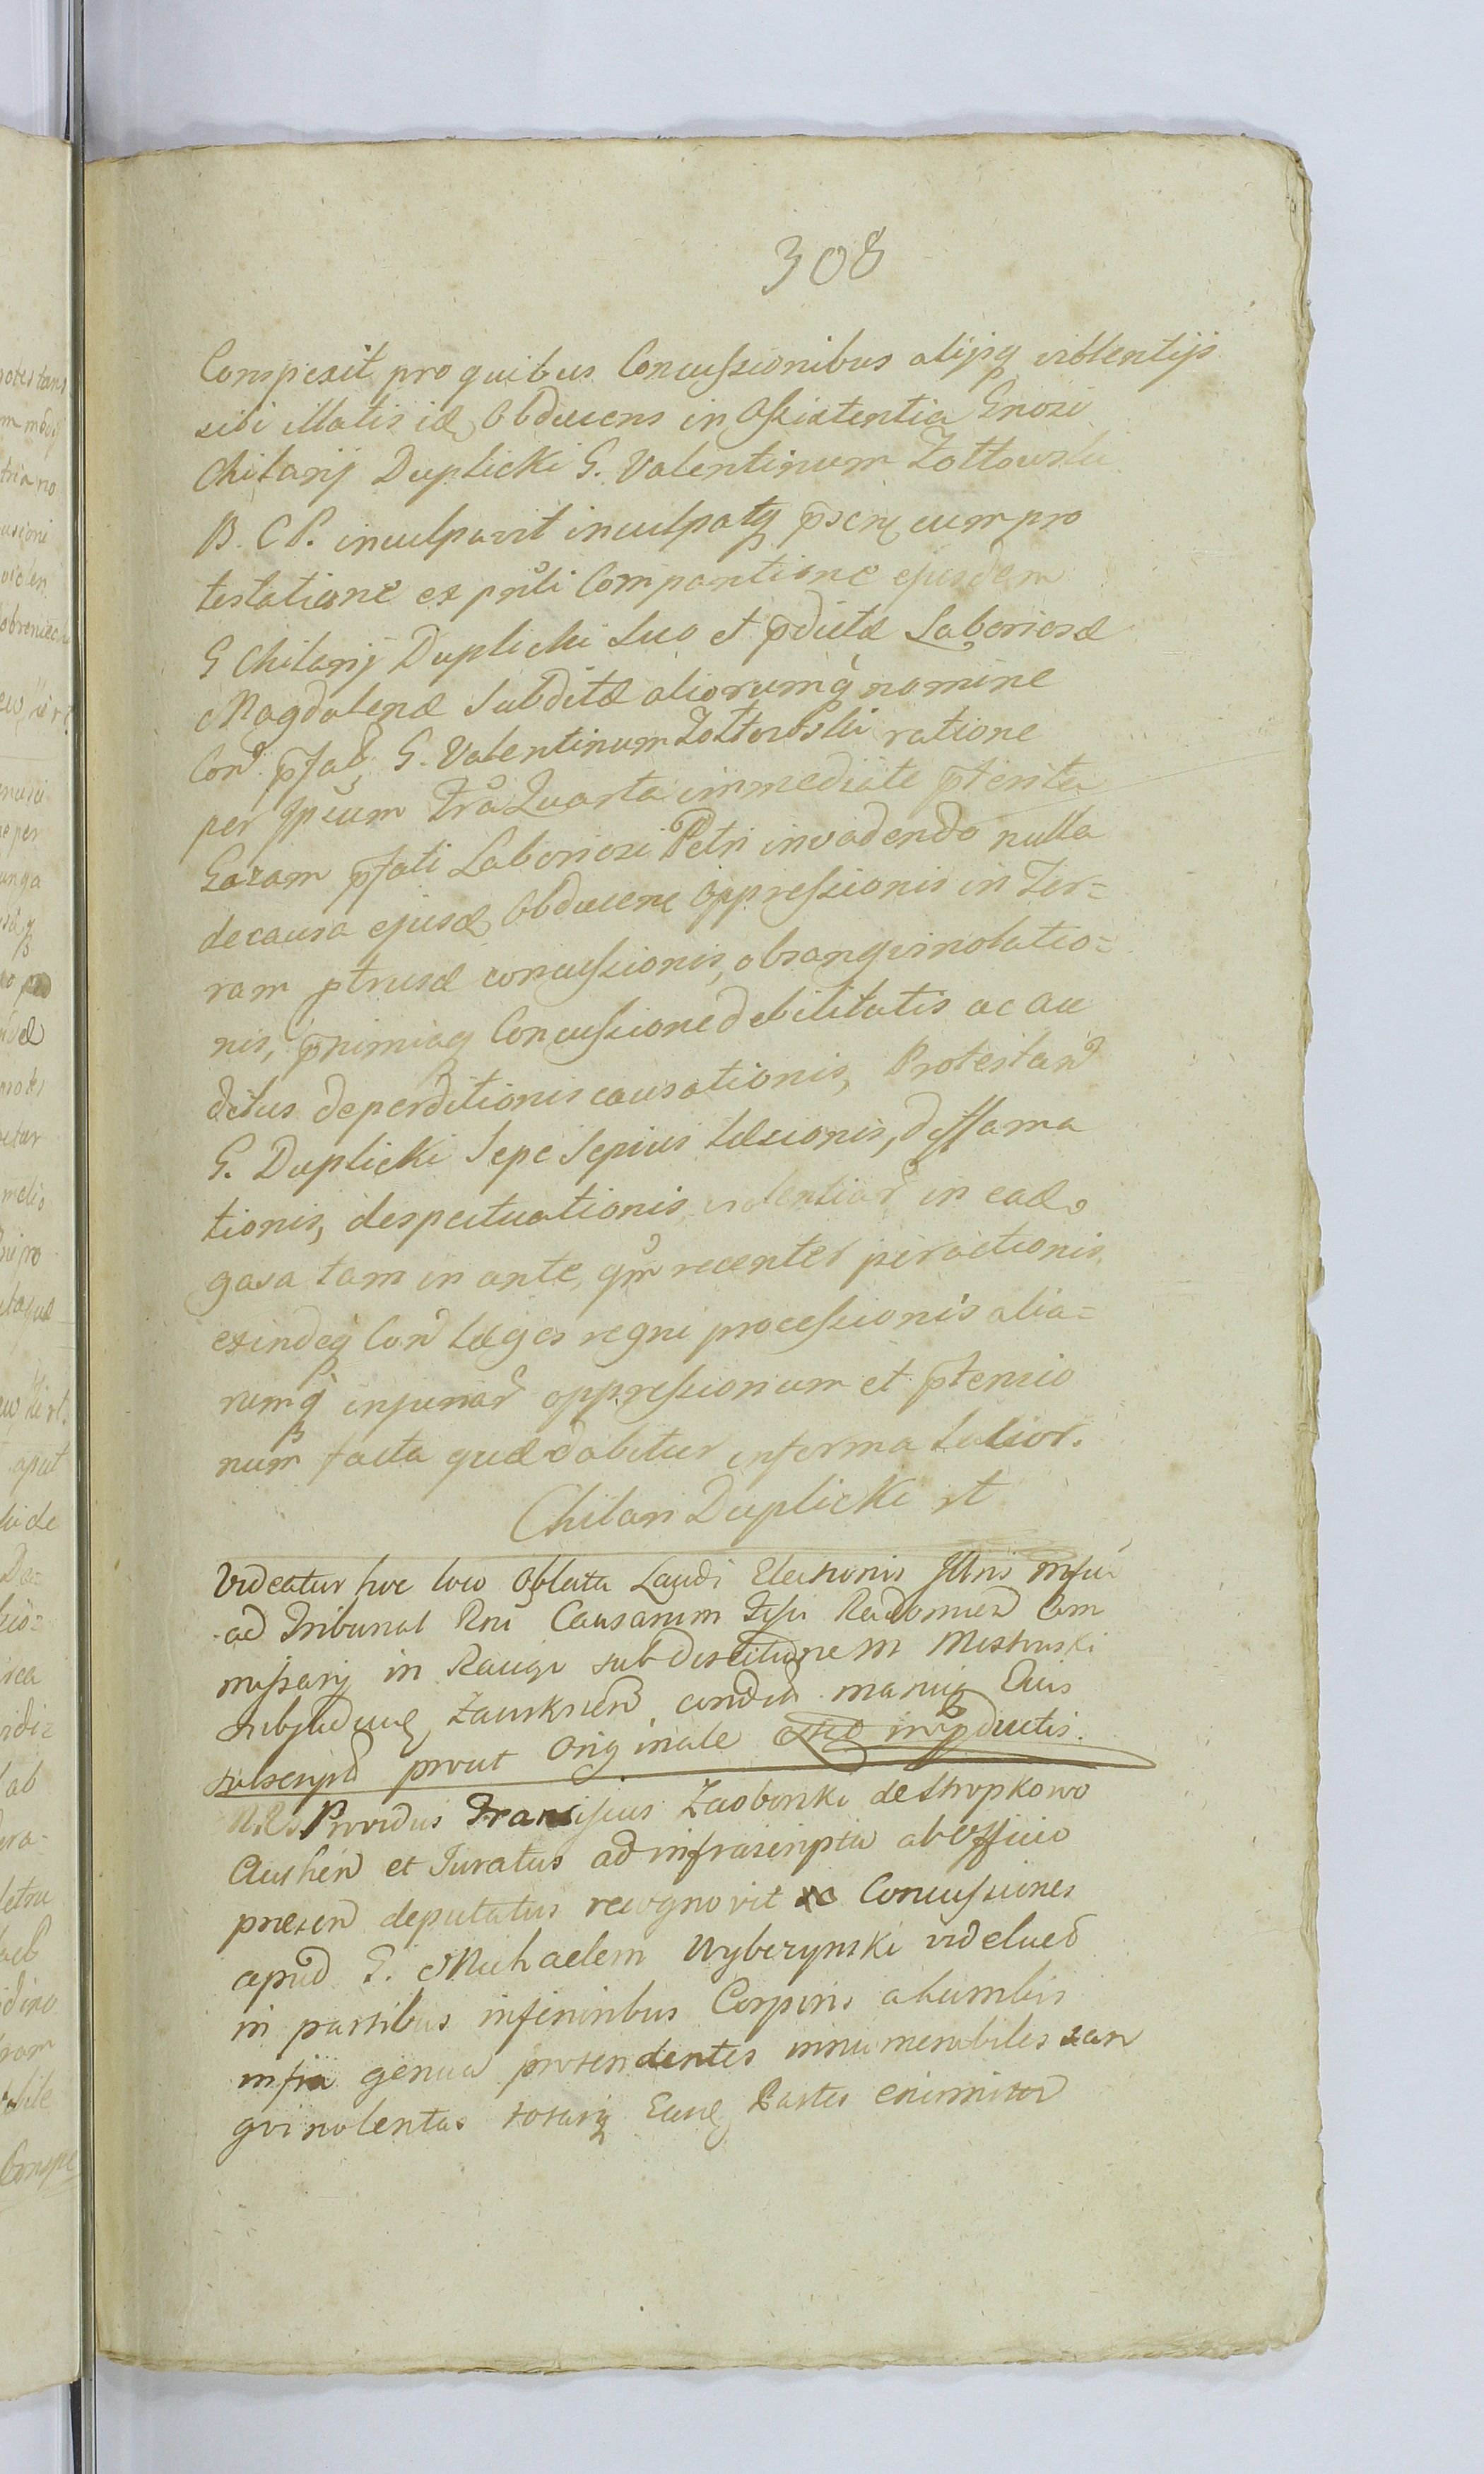 308
Conspexit pro quibus Concussionibus alijsq violentijs
sibi illatis id Obducens in Assistentia Gnosi
Chilarij Duplicki G. Valentinum Zołtowski
B. C P. inculpavit inculpatq cum pro
testatione ex pnti Comparitione ejusdem
G Chilarij Duplicki Suo et pdictæ Laboriosæ
Magdalenæ Subditæ aliorumq nomine
Con pfat G. Valentinum Zołtowski ratione
per Ipsum Fra Quarta immediate pterita
Gazam pfati Laboriosi Petri invadendo nulla
de causa ejusd Obducen Oppressionis in Ter=
ram ptrusæ concussionis, obsangvinolatio=
nis, pnimiaq Concussione debilitatis ac au
ditus deperditionis causationis, Protestan
G. Duplicki Sepe Sepius Læsionis, diffama
tionis, despectuationis violentiar in ead
gasa tam in ante, qm recenter peractionis
exindeq Con Læges regni processionis alia=
rumq injuriar oppressionum et ptensio
num facta quæ dabitur in forma Latior.
Chilari Duplicki rt
Videatur hoc loco Oblata Laudi Electionis Illris
ad Tribunal Rni Causarum Fisci Radomien Com
missarij in Ravigi sub destitutione M
Subjudicis Zauskrien manuq Eius
subscript prout Originale inpductis.
N.R. Providus Franciscus Zaoborski de Stropkowo
Authen et Juratus ad infrascripta ab Officio
presen deputatus recognovit Concussiones
apud G. Michaelem Wyberzynski videlicet
in partibus inferioribus Corporis a lumbis
infra genua protendentes innumerabiles san
gvinolentas totasq Easq Partes